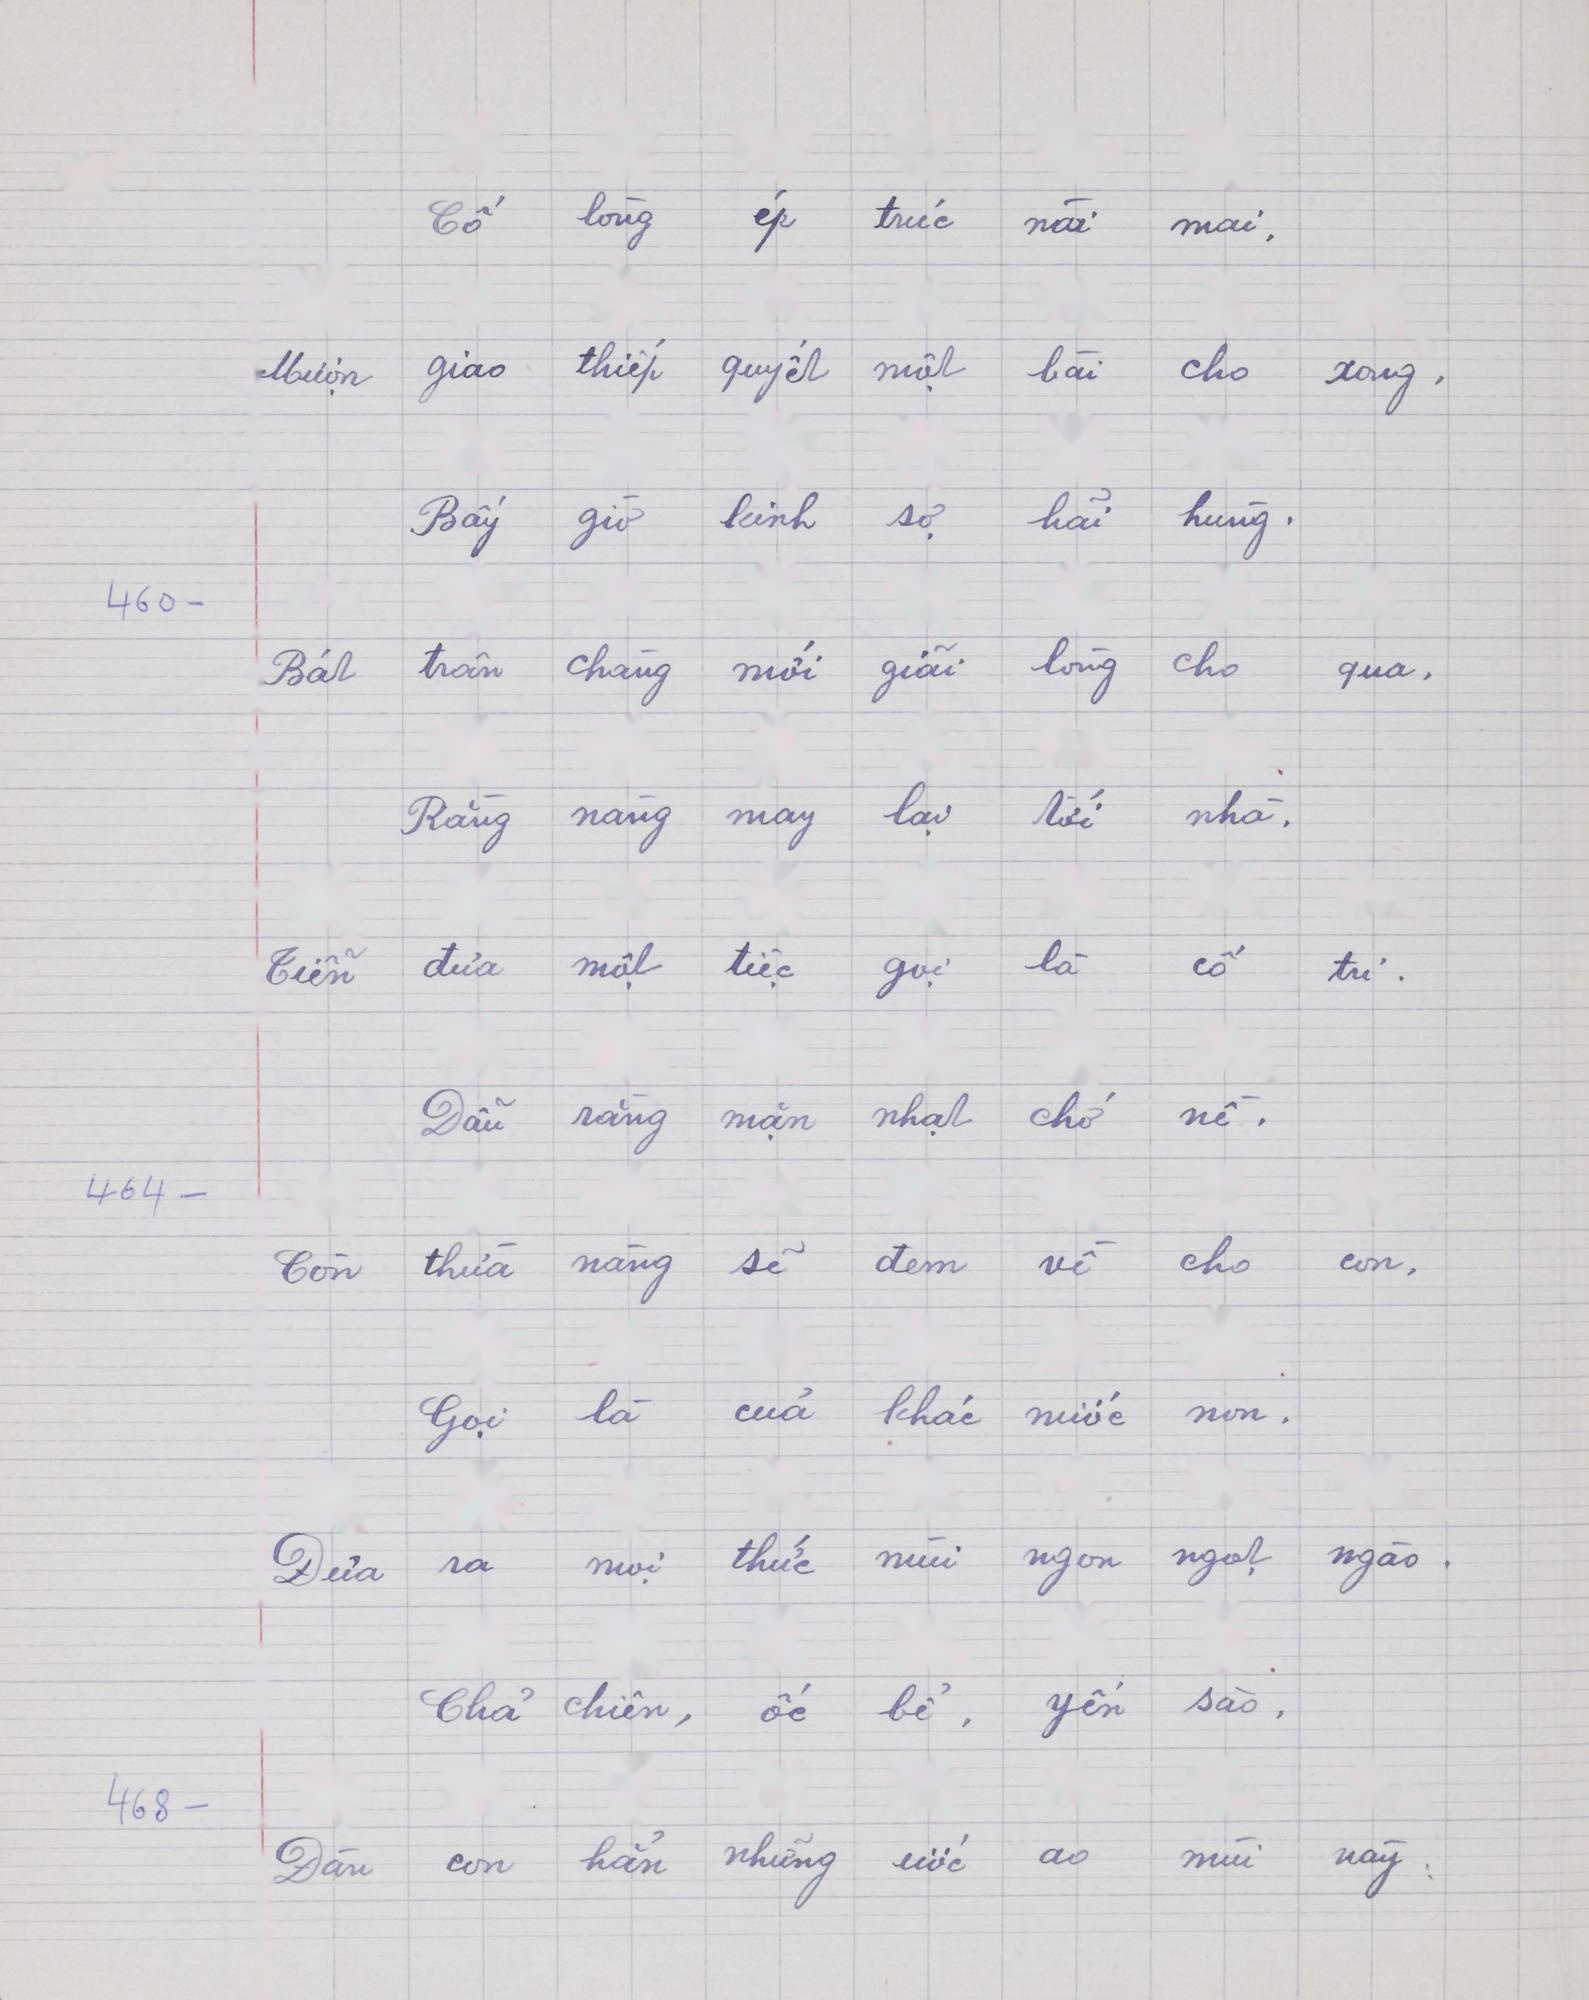 Cố lòng ép trúc nài mai,
Mượn giao thiếp quyết một bài cho xong,
Bấy giờ kinh sợ hãi hùng.
460-
Bát trân chàng mới giãi lòng cho qua,
Rằng nàng may lại tới nhà,
Tiễn đưa một tiệc gọi là cố tri.
Dẫu rằng mặn nhạt chớ nề,
464-
Còn thừa nàng sẽ đem về cho con,
Gọi là của khác nước non,
Đưa ra mọi thức mùi ngon ngọt ngào.
Chả chiên, ốc bể, yến sào,
468-
Đàn con hẳn những ước ao mùi này: